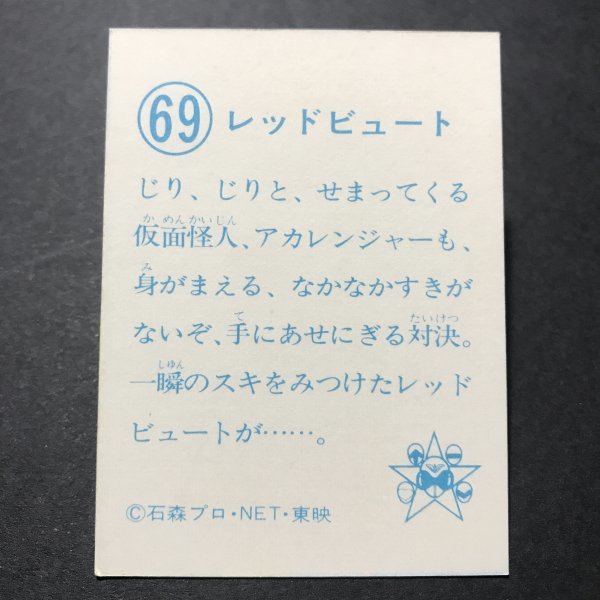 69 レッドビュート
じり、じりと、せまってくる
仮面怪人、アカレンジャーも、
身がまえる、なかなかすきが
ないぞ、手にあせにぎる対決。
一瞬のスキをみつけたレッド
ビュートが……。
©石森プロ・NET・東映